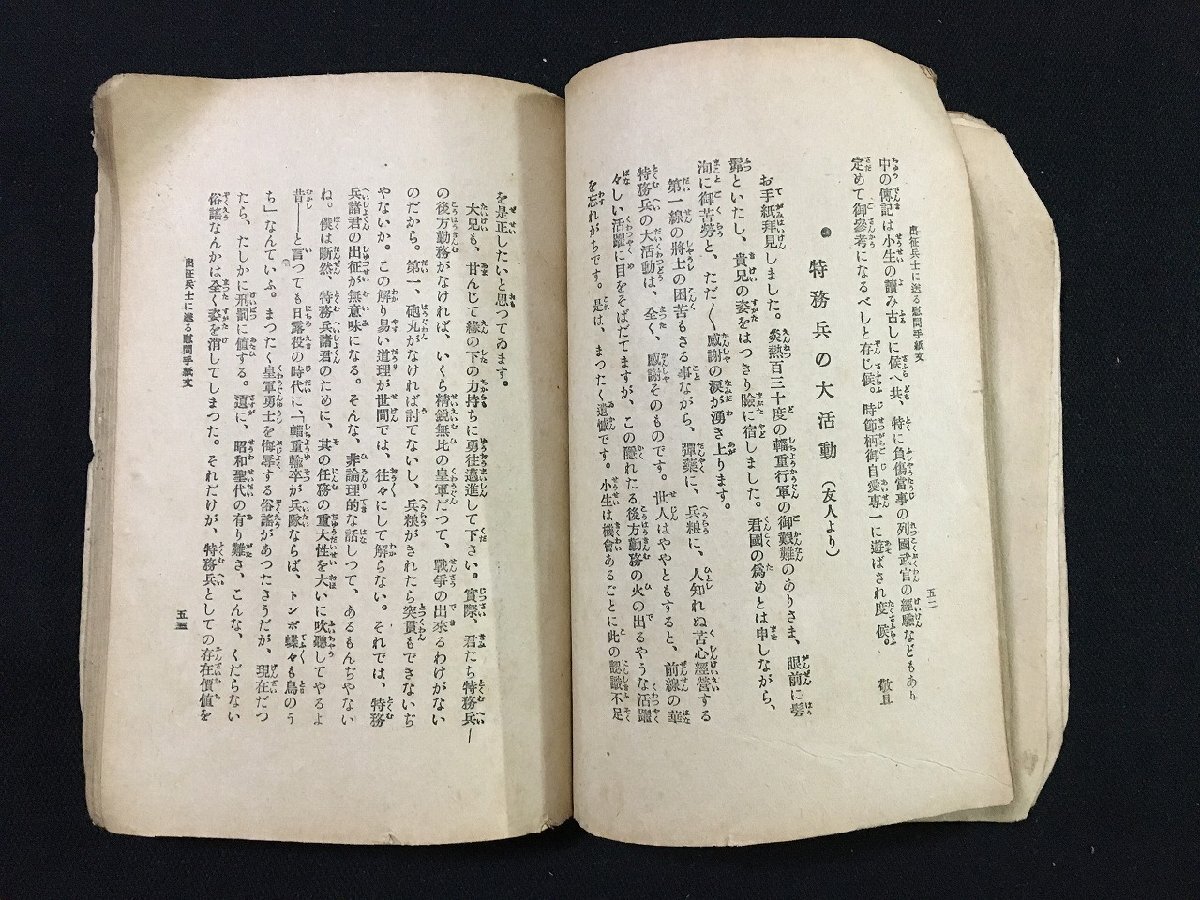 出征兵士に送る慰問手紙文
五二
中の傳記は小生の讀み古しに候へ共、特に負傷當事の列國武官の經驗などもあり
定めて御參考になるべしと存じ候。時節柄御自愛專一に遊ばされ度候。 敬具
特務兵の大活動 (友人より)
お手紙拜見しました。炎熱百三十度の輜重行軍の御艱難のありさま、眼前に髣
髴といたし、貴兄の姿をはつきり瞼に宿しました。君國の爲めとは申しながら、
洵に御苦勞と、ただ〱感謝の涙が湧き上ります。
第一線の將士の困苦もさる事ながら、彈藥に、兵粮に、人知れぬ苦心經營する
特務兵の大活動は、全く、感謝そのものです。世人はややともすると、前線の華
々しい活躍に目をそばだてますが、この隱れたる後方勤務の火の出るやうな活躍
を忘れがちです。是は、まつたく遺憾です。小生は機會あるごとに此の認識不足
を是正したいと思つてゐます。
大兄も、甘んじて緣の下の力持ちに勇往邁進して下さい。實際、君たち特務兵―
の後方勤務がなければ、いくら精銳無比の皇軍だつて、戰爭の出來るわけがない
のだから。第一、砲丸がなければ討てないし、兵粮がきれたら突貫もできないぢ
やないか。この解り易い道理が世間では、往々にして解らない。それでは、特務
兵諸君の出征が無意味になる。そんな、非論理的な話しつて、あるもんぢやない
ね。僕は斷然、特務兵諸君のために、其の任務の重大性を大いに吹聽してやるよ
昔――と言つても日露役の時代に、「輜重輸卒が兵隊ならば、トンボ蝶々も鳥のう
ち」なんていふ。まつたく皇軍勇士を侮辱する俗謠があつたさうだが、現在だつ
たら、たしかに刑罰に値する。遉に、昭和聖代の有り難さ、こんな、くだらない
俗謠なんかは全く姿を消してしまつた。それだけが、特務兵としての存在價値を
出征兵士に送る慰問手紙文
五三